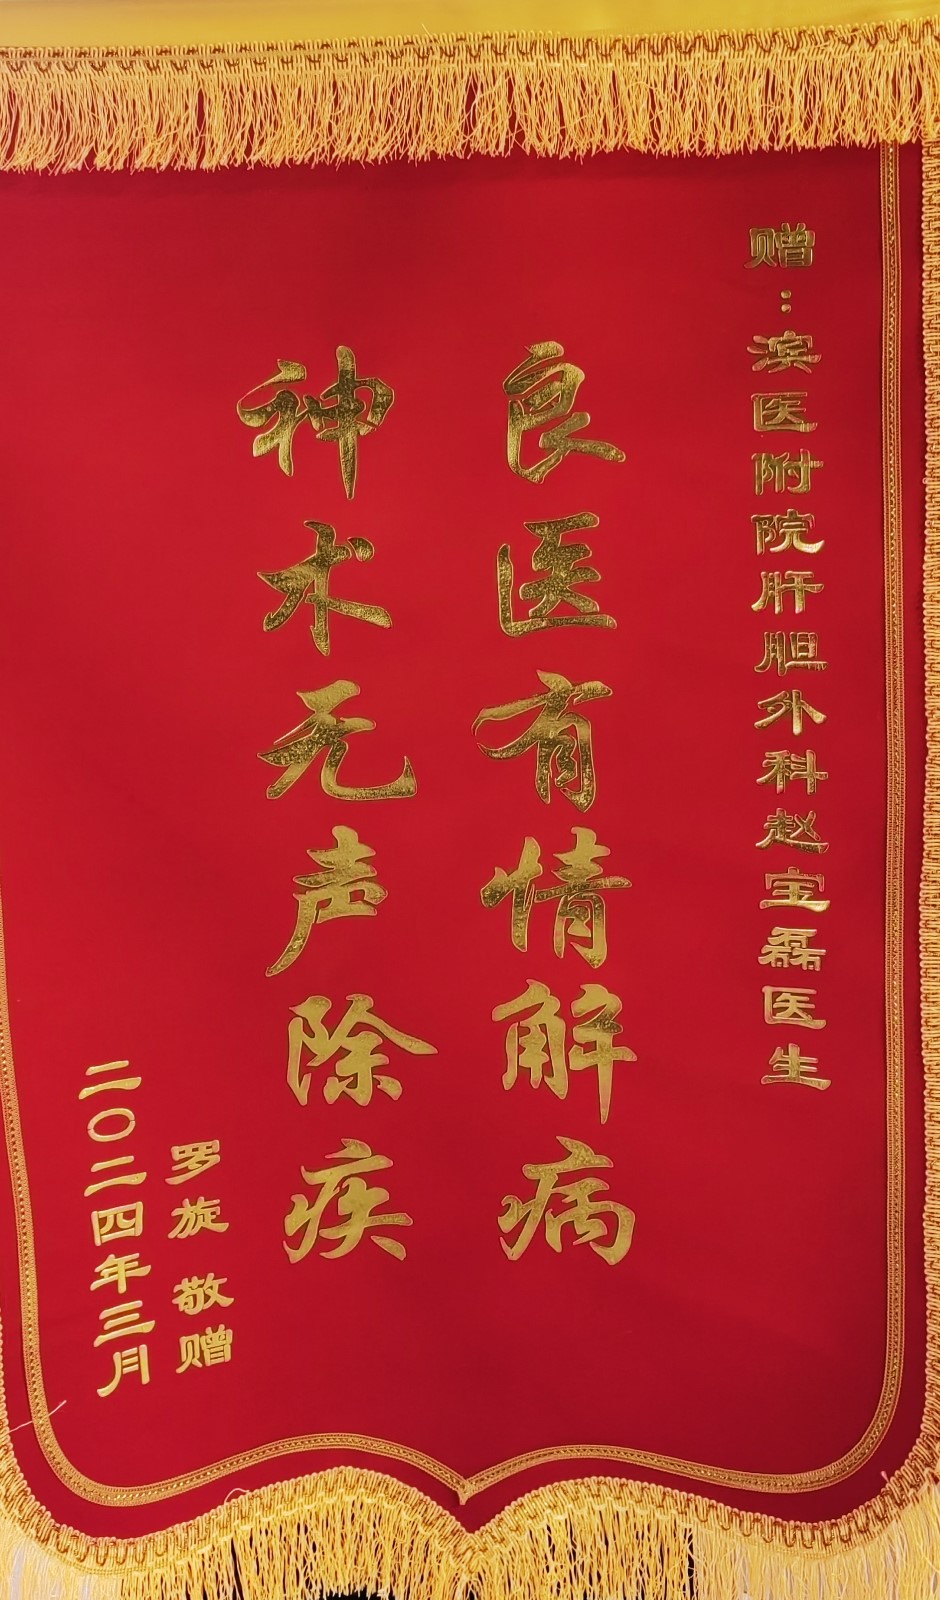 赠：滨医附院肝胆外科赵宝磊医生
良医有情解病
神术无声除疾
罗旋 敬赠
二〇二四年三月